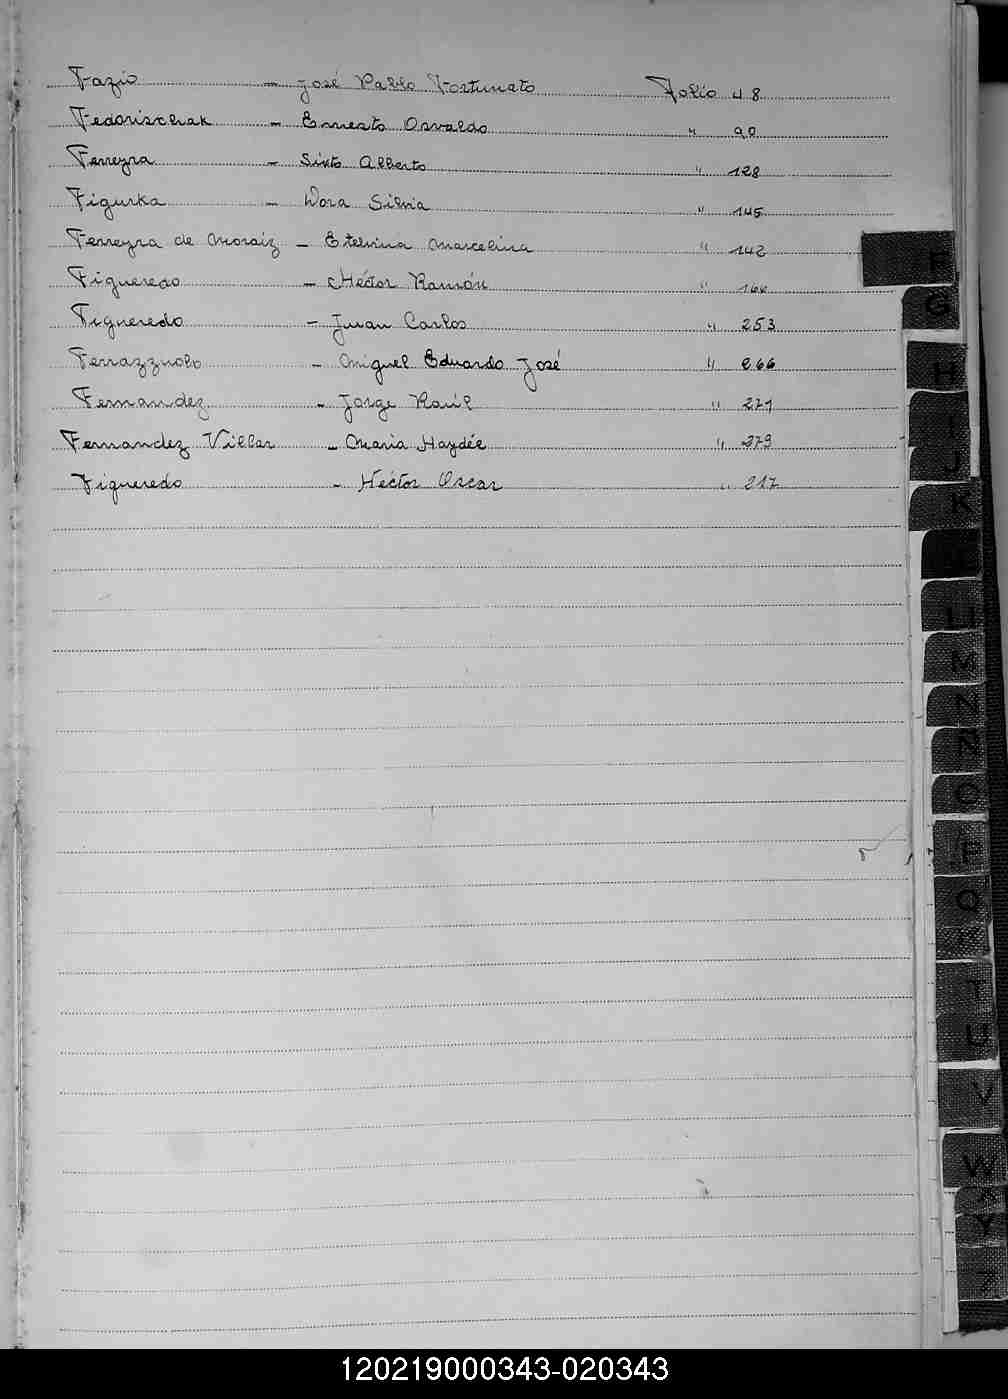 Fazio - José Pablo Fortunato Folio 48
Fedorischak - Ernesto Osvaldo " 90
Ferreyra - Sixto Alberto " 128
Figurka - Dora Silvia " 145
Ferreyra de Moraiz - Etelvina Marcelina " 142
Figueredo - Héctor Ramón " 166
Figueredo - Juan Carlos " 253
Ferrazzuolo - Miguel Eduardo José " 266
Fernandez - Jorge Raúl " 271
Fernandez Villar - Maria Haydée " 279
Figueredo - Héctor Oscar " 217
F
G
H
I
J
K
L
LL
M
N
Ñ
O
P
Q
T
U
V
W
X
Y
120219000343-020343